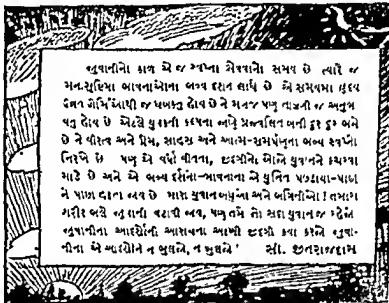 જુવાનીનો કાળ એ જ સ્વપ્ના સેવવાનો સમય છે ત્યારે જ
મન:સૃષ્ટિમા ભાવનાઓના ભવ્ય દર્શન લાધે છે એ સમયમા હૃદય
ઉન્નત ઊર્મિઓથી જ ધબકતુ હોય છે ને મનજ પણ તાજગી જ અનુભ
વતુ હોય છે એટલે યુવકની કલ્પના બધે પ્રજ્વલિત બની દૂર દૂર ભમે
છે ને વીરત્વ અને પ્રેમ, સાહસ અને આત્મ-સમર્પણના ભવ્ય સ્વપ્નો
નિરખે છે પણ એ વર્ષો વીતતા, જીદગીનો બોજો યુવાનને કચરવા
માટે છે અને એ ભવ્ય દર્શનો-ભાવનાના એ પુનિત પડછાયા-પાછા
ને પાછા હઠતા જાય છે મારા યુવાન બધુઓ અને ભગિનીઓ ! તમારા
શરીર ભલે જુવાની વટાવી જાય, પણ તમે તો સદા યુવાન જ રહેજો
જુવાનીના આદર્શોની આરાધના આખી જીદગી કર્યા કરજો જુવા-
નીના એ આદર્શોને ન ભૂલશો, ન ભૂલશો ' સી. જીનરાજદાસ